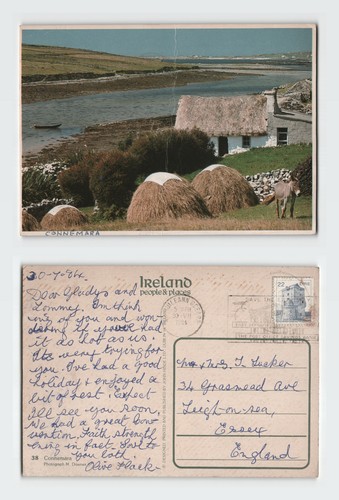 CONNEMARA
20-7-84.
Dear Gladys and
Tommy. Im think
ing of you and won
dering if you've had
it as hot as us.
Its very trying for
you. I've had a good
holiday & enjoyed a
bit of rest. I expect
I'll see you soon.
We had a great Con
vention. Faith strength
ening in fact. Love to
you both.
Olive
38 Connemara
Ireland
people & places
22
Mr & Mrs T.
34 Grasmead Ave
Leigh-on-sea,
Essex
England